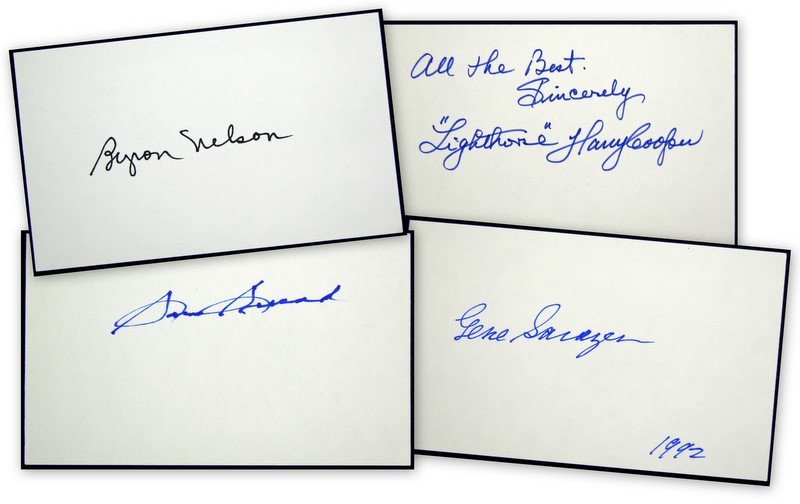 Byron Nelson
All the Best.
Sincerely
"Lighthorse" Harry Cooper
Sam Snead
Gene Sarazen
1992